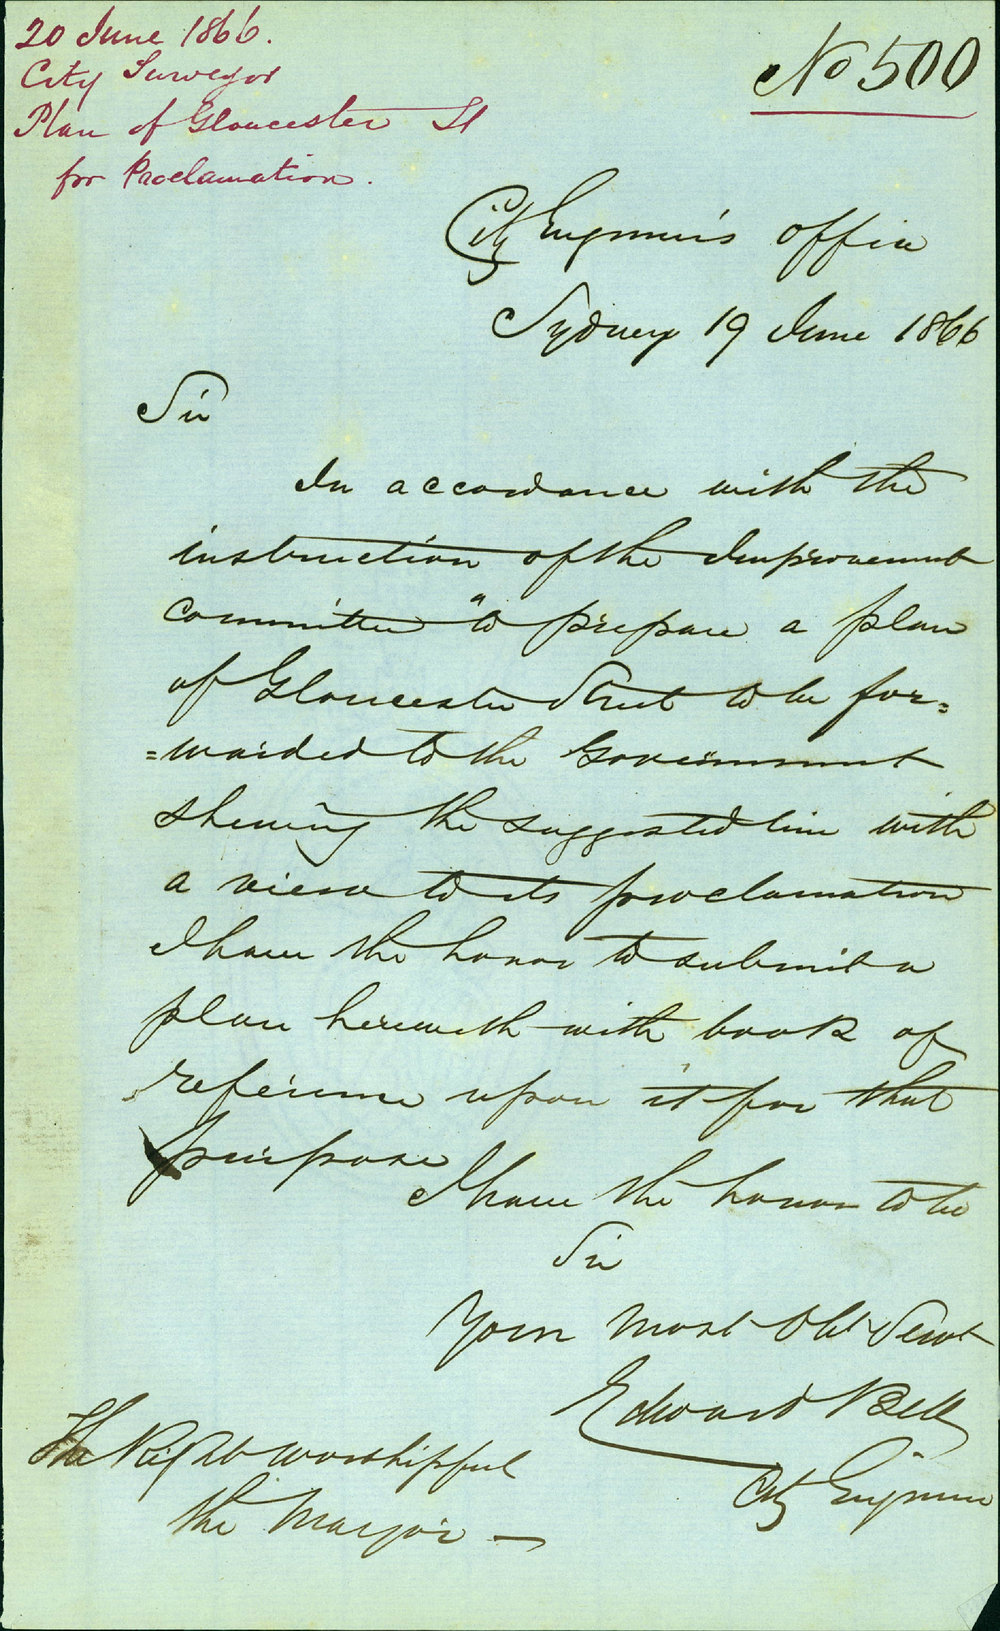 20 June 1866.
City Surveyor
Plan of Gloucester St
for Proclamation.
No 500
City Engineer's office
Sydney 19 June 1866
Sir
In accordance with the
instruction of the Improvement
Committee "to prepare a plan
of Gloucester Street to be for=
=warded to the Government
shewing the suggested line with
a view to its proclamation
I have the honor to submit a
plan herewith with book of
reference upon it for that
purpose
I have the honor to be
Sir
Your most Obt Servt
Edward Bell
City Engineer
The Right Worshipful
the Mayor —